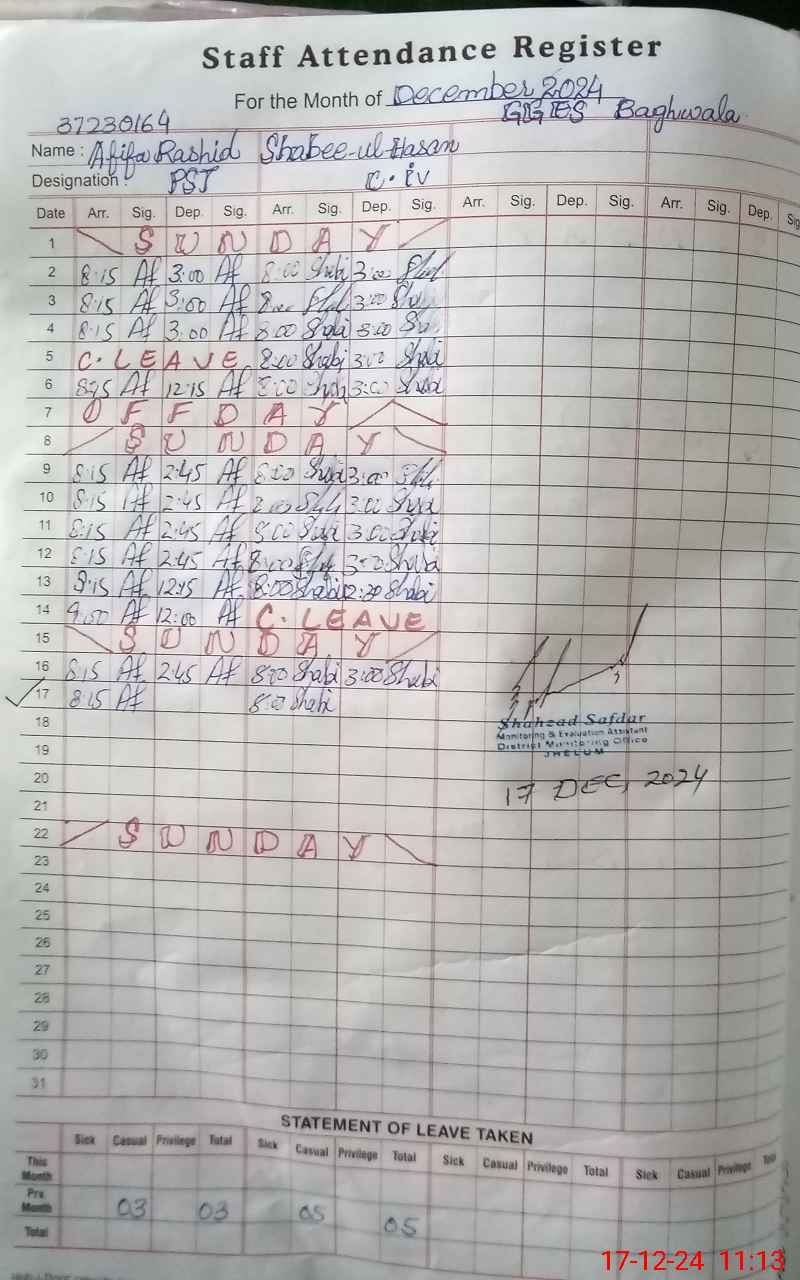 Staff Attendance Register
For the Month of December 2024
37230164 GGES Baghwala
Name : Afifa Rashid Shabee-ul-Hasan
Designation : PST C.iv
Date Arr. Sig. Dep. Sig. Arr. Sig. Dep. Sig. Arr. Sig. Dep. Sig. Arr. Sig. Dep. Sig
1 SUNDAY
2 8:15 Af 3:00 Af 8:00 Shabi 3:00
3 8:15 Af 3:00 Af 3:00
4 8:15 Af 3:00 Af 8:00 Shabi 3:00
5 C. LEAVE 8:00 Shabi 3:00 Shabi
6 Af 12:15 Af 8:00 3:00 Shabi
7 OFF DAY
8 SUNDAY
9 8:15 Af 2:45 Af 8:00 Shabi 3:00
10 8:15 Af 2:45 Af 3:00 Shabi
11 8:15 Af 2:45 Af 8:00 Shabi 3:00 Shabi
12 8:15 Af 2:45 Af 8:00 3:00 Shabi
13 8:15 Af 12:15 Af 8:00 Shabi 12:30 Shabi
14 9:00 Af 12:00 Af C. LEAVE
15 SUNDAY
16 8:15 Af 2:45 Af 8:00 Shabi 3:00 Shabi
17 8:15 Af 8:00 Shabi
18
19
20
21
22 SUNDAY
23
24
25
26
27
28
29
30
31
Shahzad Safdar
Monitoring & Evaluation Assistant
District Monitoring Office
JHELUM
17 DEC, 2024
STATEMENT OF LEAVE TAKEN
Sick Casual Privilege Total Sick Casual Privilege Total Sick Casual Privilege Total Sick Casual Privilege Total
This Month
Pre Month 03 03 05 05
Total
17-12-24 11:13